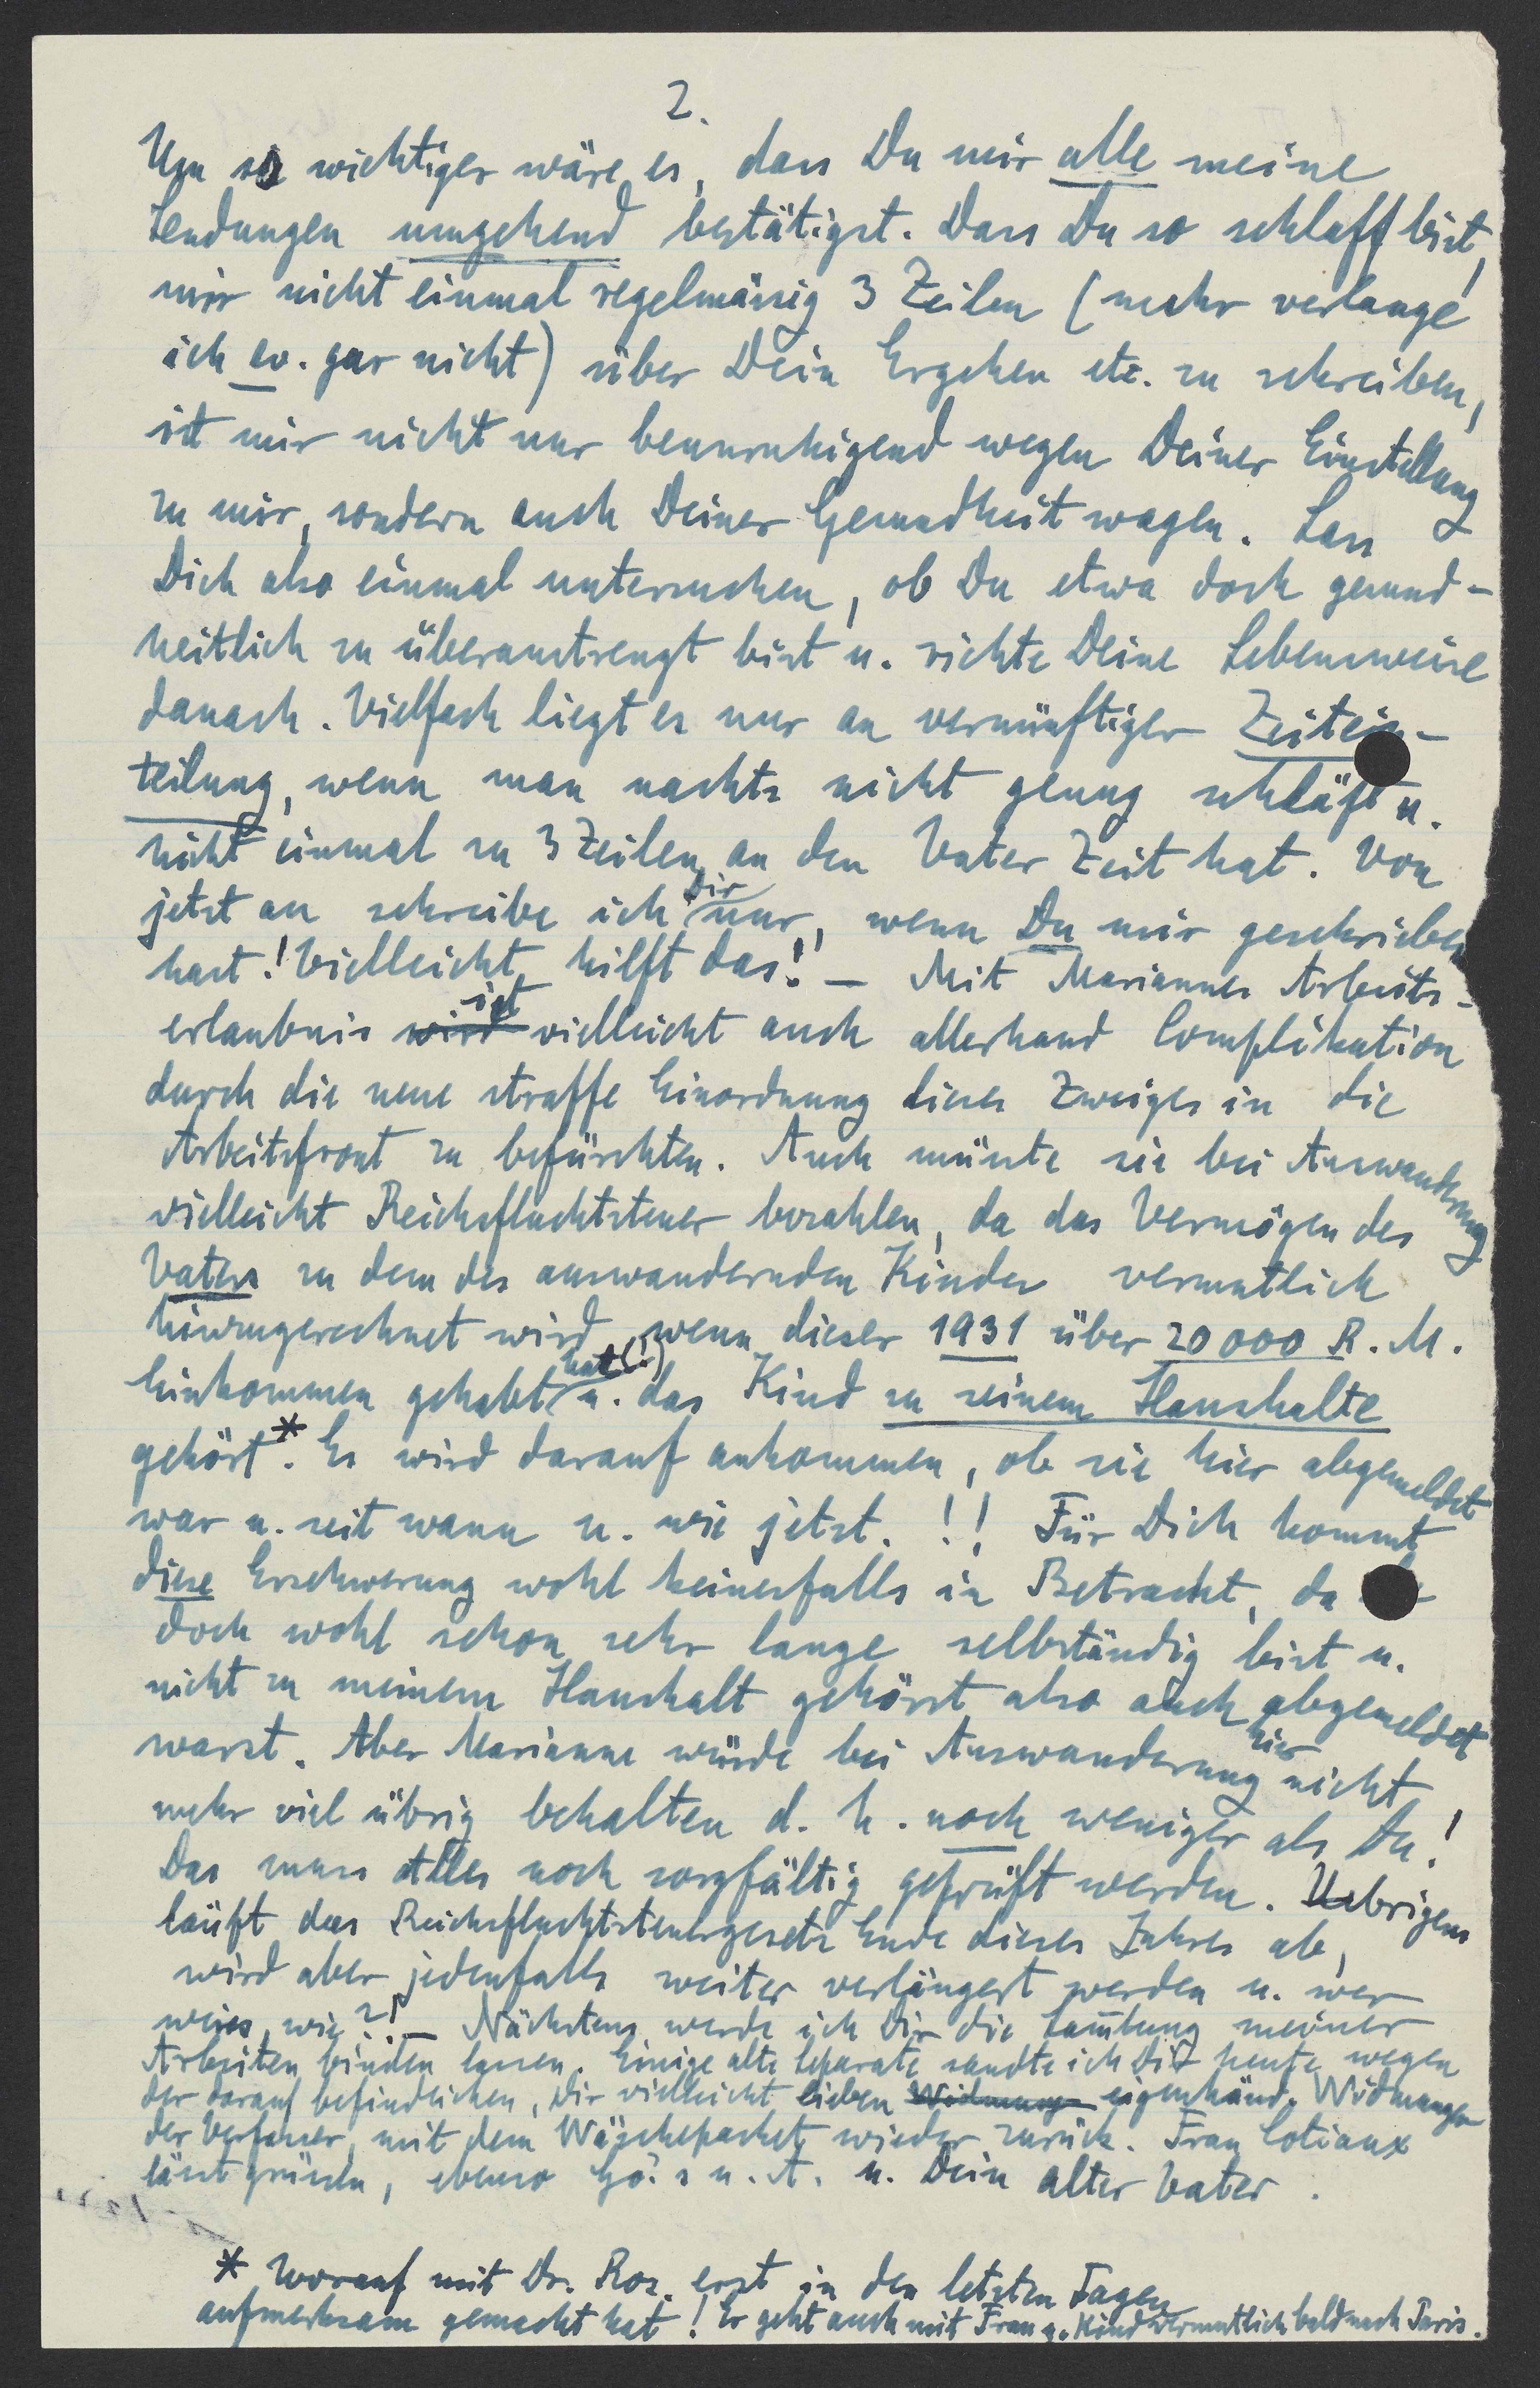 2.
Um so wichtiger wäre es, dass Du mir alle meine
Sendungen umgehend bestätigst. Dass Du so schlaff bist,
mir nicht einmal regelmässig 3 Zeilen (mehr verlange
ich ev. gar nicht) über Dein Ergehen etc. zu schreiben,
ist mir nicht nur beunruhigend wegen Deiner Einstellung
zu mir, sondern auch Deiner Gesundheit wegen. Lass
Dich also einmal untersuchen, ob Du etwa doch gesund-
heitlich zu überanstrengt bist u. richte Deine Lebensweise
danach. Vielfach liegt es nur an vernünftiger Zeitein-
teilung, wenn man nachts nicht genug schläft u.
nicht einmal zu 3 Zeilen an den Vater Zeit hat. Von
jetzt an schreibe ich Dir nur, wenn Du mir geschrieben
hast! Vielleicht hilft das! – Mit Mariannes Arbeits-
erlaubnis wird ist vielleicht auch allerhand Complikation
durch die neue straffe Einordnung dieses Zweiges in die
Arbeitsfront zu befürchten. Auch müsste sie bei Auswanderung
vielleicht Reichsfluchtsteuer bezahlen, da das Vermögen des
Vaters zu dem des auswandernden Kindes vermutlich
hinzugerechnet wird, wenn dieser 1931 über 20 000 R. M.
Einkommen gehabt hat(!) u. das Kind zu seinem Haushalte
gehört*. Es wird darauf ankommen, ob sie hier abgemeldet
war u. seit wann u. wie jetzt. !! Für Dich kommt
diese Erschwerung wohl keinesfalls in Betracht, da
doch wohl schon sehr lange selbständig bist u.
nicht zu meinem Haushalt gehörst also auch abgemeldet
warst. Aber Marianne würde bei Auswanderung hier nicht
mehr viel übrig behalten d. h. noch weniger als Du!
Das muss Alles noch sorgfältig geprüft werden. Uebrigens
läuft das Reichsfluchtsteuergesetz Ende dieses Jahres ab,
wird aber jedenfalls weiter verlängert werden u. wer
weiss, wie?! – Nächstens werde ich Dir die Sam̅lung meiner
Arbeiten binden lassen. Einige alte Separate sandte ich Dir heute wegen
der darauf befindlichen, Dir vielleicht lieben Widmung eigenhänd. Widmungen
der Verfasser, mit dem Wäschepacket wieder zurück. Frau Cotiaux
lässt grüssen, ebenso Go's u. A. u. Dein alter Vater.
* Worauf mit Dr. Ros. erst in den letzten Tagen
aufmerksam gemacht hat! Er geht auch mit Frau u. Kind vermutlich bald nach Paris.